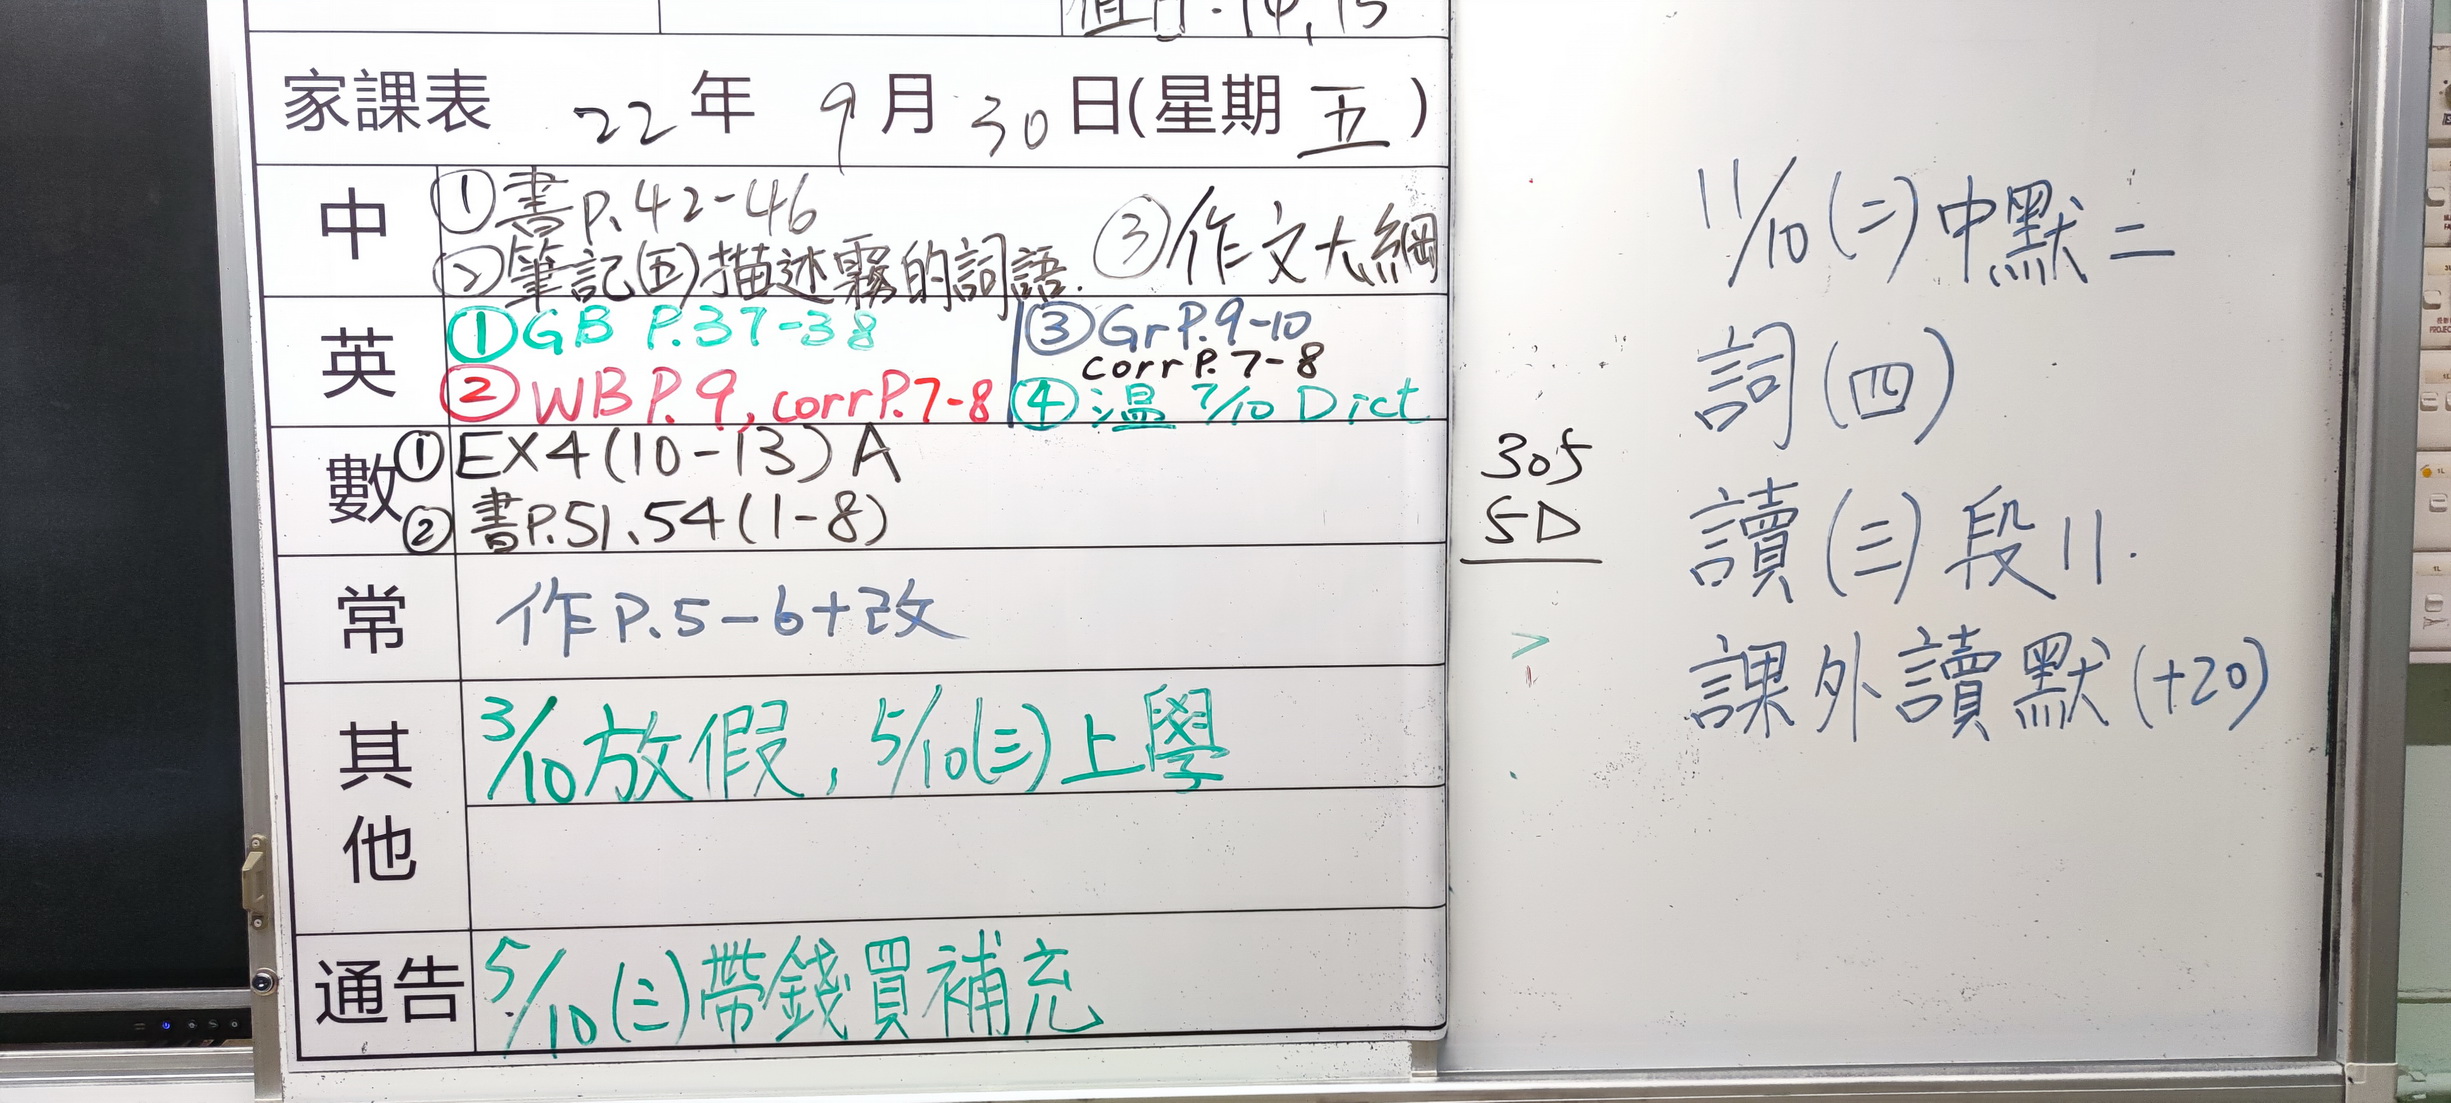 值日：14, 15
家課表 22年 9月30日(星期五)
中
①書P.42-46
②筆記(五)描述霧的詞語.
③作文大綱
英
①GB P.37-38
②WB P.9, corr P.7-8
③Gr P.9-10
corr P. 7-8
④溫 7/10 Dict
數
①EX4(10-13)A
②書P.51、54(1-8)
常
作P.5-6+改
其他
3/10放假，5/10(三)上學
通告
5/10(三)帶錢買補充
305
5D
11/10(二)中默二
詞(四)
讀(三)段11.
課外讀默(+20)